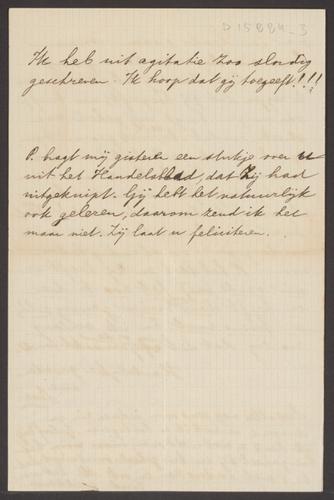 D 15884_3
Ik heb uit agitatie zoo slordig
geschreven. Ik hoop dat gij toegeeft!!!!
P. bragt mij gisteren een stukje over u
uit het Handelsblad, dat Zij had
uitgeknipt. Gij hebt het natuurlijk
ook gelezen, daarom zend ik het
maar niet. Zij laat u feliciteren.